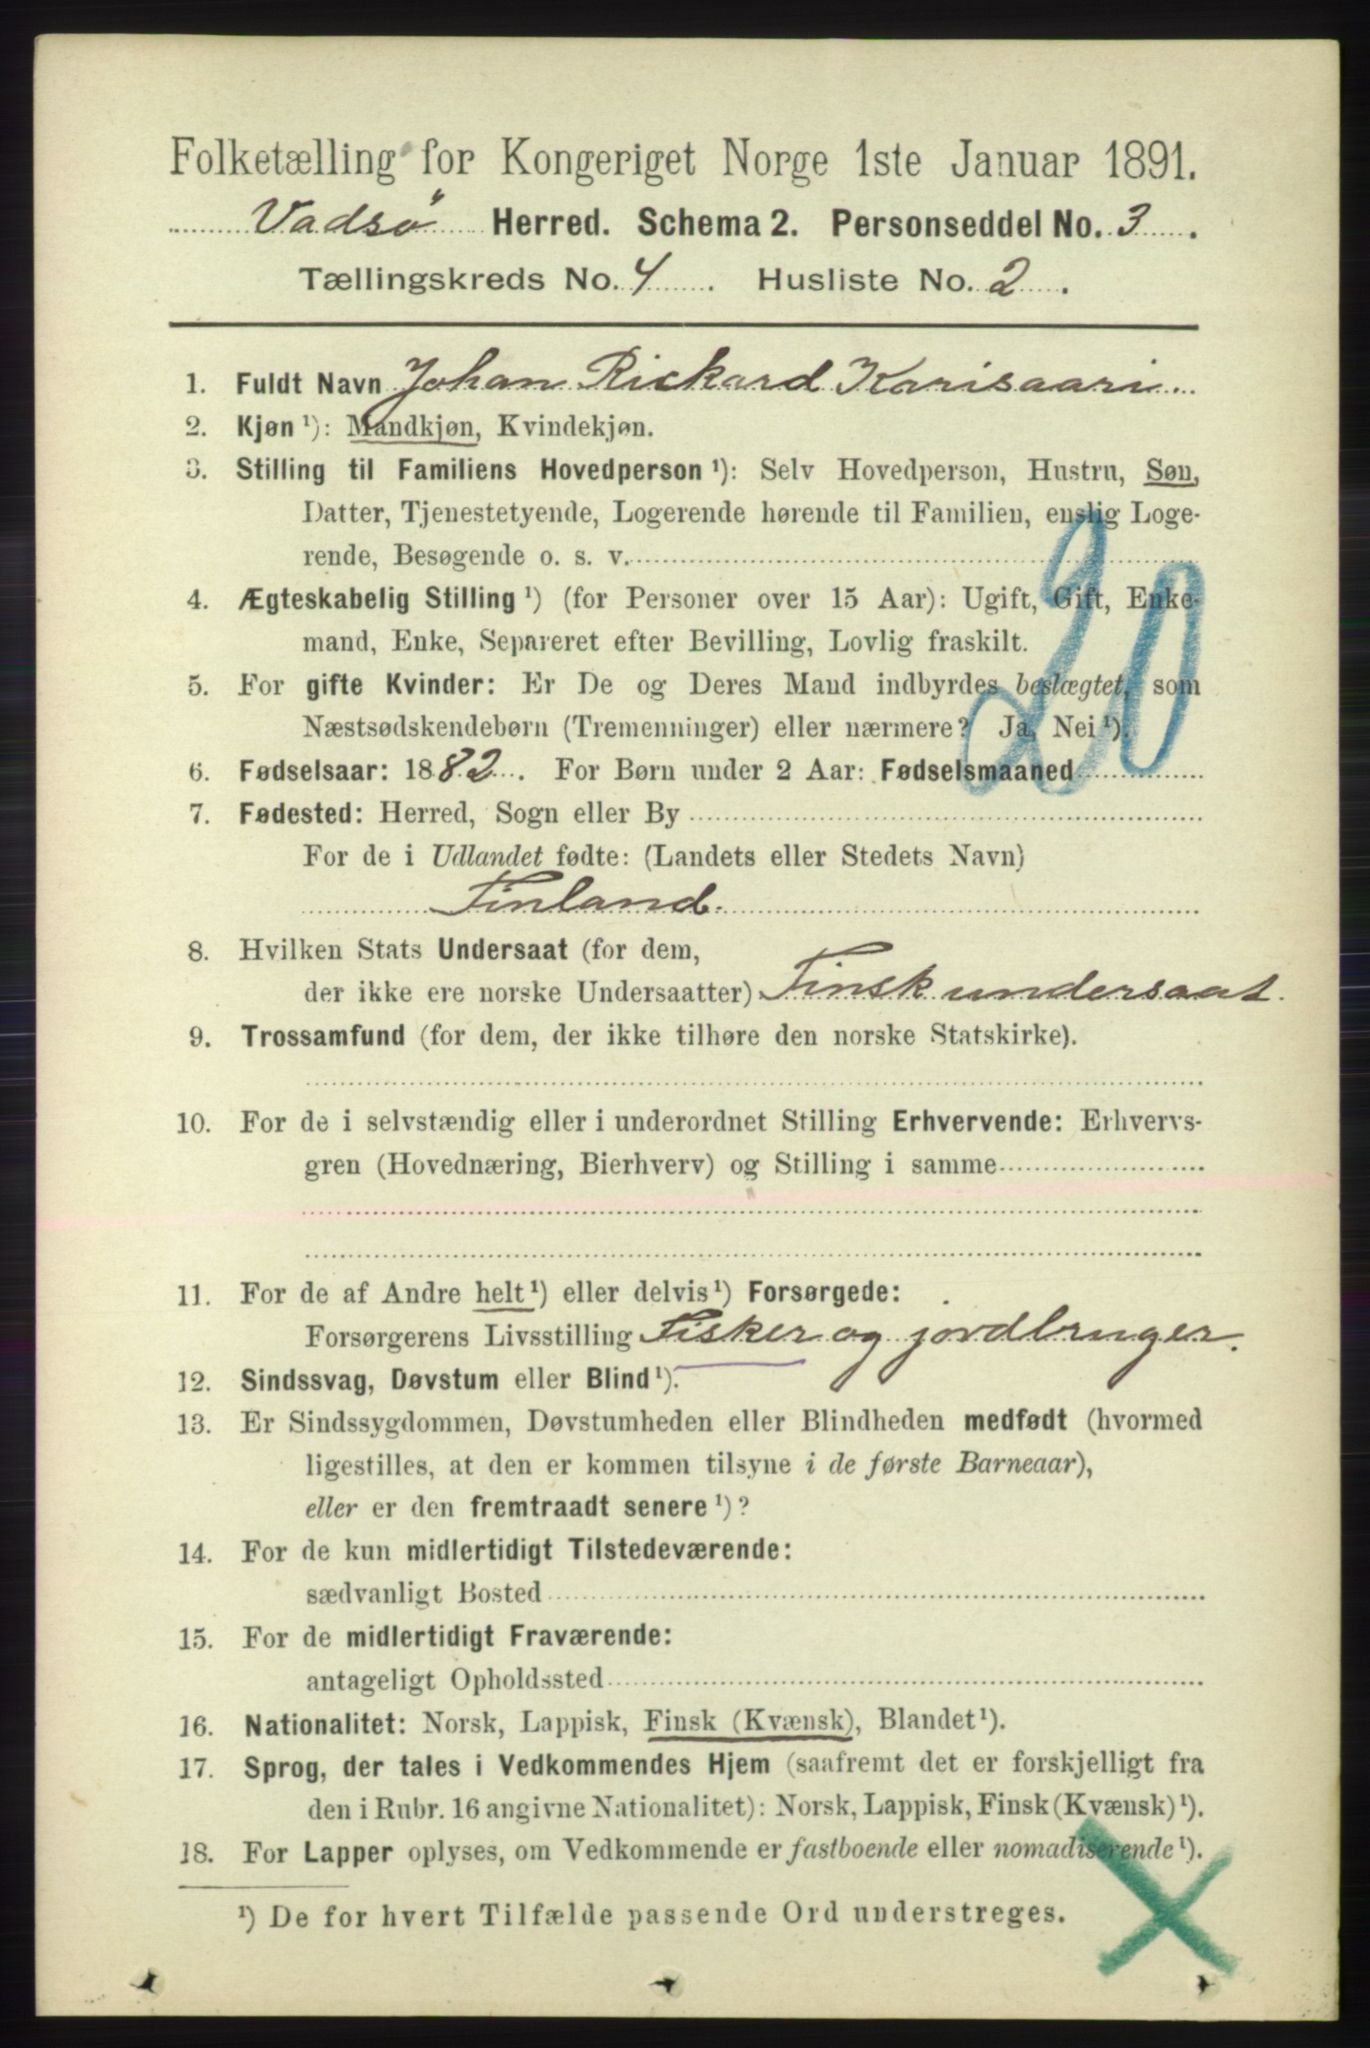 Folketælling for Kongeriget Norge 1ste Januar 1891.
Vadsø Herred. Schema 2. Personseddel No. 3.
Tællingskreds No. 4. Husliste No. 2.
1. Fuldt Navn Johan Rickard Karisaari
2. Kjøn ¹): Mandkjøn, Kvindekjøn.
3. Stilling til Familiens Hovedperson ¹): Selv Hovedperson, Hustru, Søn,
Datter, Tjenestetyende, Logerende hørende til Familien, enslig Loge-
rende, Besøgende o. s. v.
20
4. Ægteskabelig Stilling ¹) (for Personer over 15 Aar): Ugift, Gift, Enke-
mand, Enke, Separeret efter Bevilling, Lovlig fraskilt.
5. For gifte Kvinder: Er De og Deres Mand indbyrdes beslægtet, som
Næstsødskendebørn (Tremenninger) eller nærmere? Ja, Nei ¹).
6. Fødselsaar: 1882. For Børn under 2 Aar: Fødselsmaaned
7. Fødested: Herred, Sogn eller By
For de i Udlandet fødte: (Landets eller Stedets Navn)
Finland.
8. Hvilken Stats Undersaat (for dem,
der ikke ere norske Undersaatter) Finsk undersaat.
9. Trossamfund (for dem, der ikke tilhøre den norske Statskirke).
10. For de i selvstændig eller i underordnet Stilling Erhvervende: Erhvervs-
gren (Hovednæring, Bierhverv) og Stilling i samme
11. For de af Andre helt ¹) eller delvis ¹) Forsørgede:
Forsørgerens Livsstilling Fisker og jordbruger.
12. Sindssvag, Døvstum eller Blind ¹).
13. Er Sindssygdommen, Døvstumheden eller Blindheden medfødt (hvormed
ligestilles, at den er kommen tilsyne i de første Barneaar),
eller er den fremtraadt senere ¹)?
14. For de kun midlertidigt Tilstedeværende:
sædvanligt Bosted
15. For de midlertidigt Fraværende:
antageligt Opholdssted
16. Nationalitet: Norsk, Lappisk, Finsk (Kvænsk), Blandet ¹).
17. Sprog, der tales i Vedkommendes Hjem (saafremt det er forskjelligt fra
den i Rubr. 16 angivne Nationalitet): Norsk, Lappisk, Finsk (Kvænsk) ¹).
18. For Lapper oplyses, om Vedkommende er fastboende eller nomadiserende ¹).
¹) De for hvert Tilfælde passende Ord understreges.